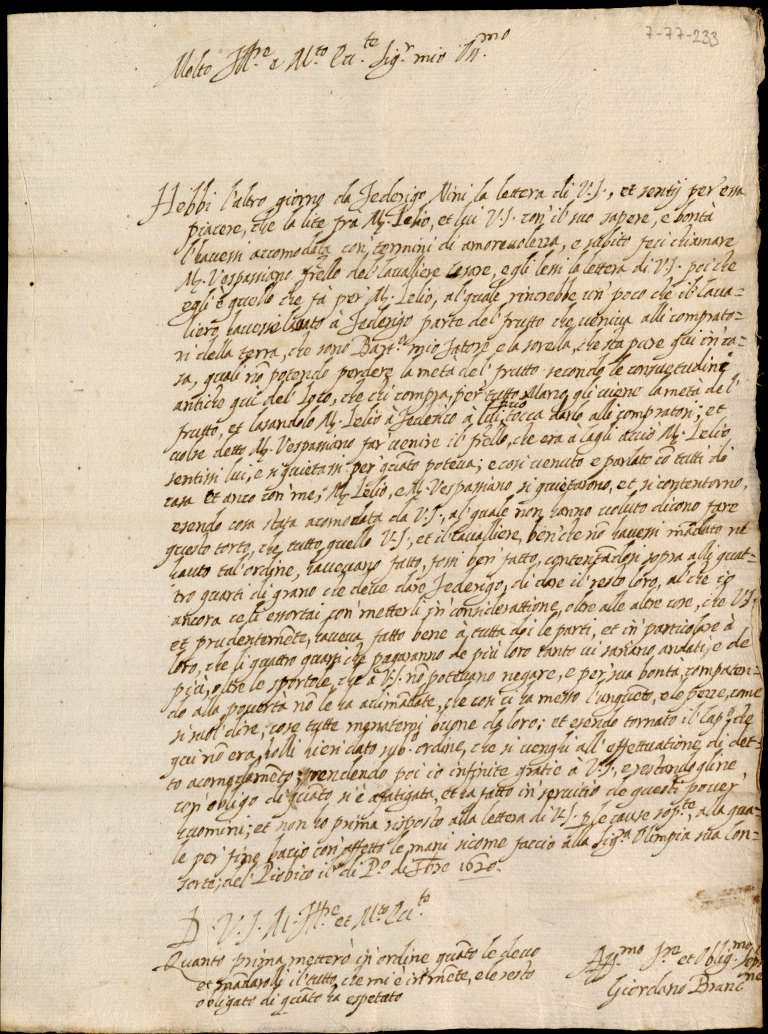 7-77-233
Molto Ill.re e M.to Ecc.te Sig.r mio Oss.mo
Hebbi l'altro giorno da Federigo Nini la lettera di V.S., et sentij per essa
piacere, che la lite frà M. Lelio, et lui V.S. con il suo sapere, e bontà
l'havessi accomodata con termini di amorevolezza, e subito feci chiamare
M. Vespassiano frello del Cavalliere Cesare, e gli lessi la lettera di V.S. poi che
egli è quello che fà per M. Lelio, al quale rincrebbe un poco che il Cava=
liero havesse lasato à Federigo parte del frutto che veniva alli comprato=
ri della terra, che sono Bart.o mio fatore e la sorella, che sta pure qui in ca=
sa, quali nō potendo perdere la metà del frutto secondo le consuetudine
antiche qui del loco, che chi compra, per tutto Marzo gli viene la metà del
frutto, et lasandolo M. Lelio à Federico à lui tocca darlo alli compratori; et
volse detto M. Vespassiano far venire il frello, che era à Cagli acciò M. Lelio
sentissi lui, e si quietassi per quāto poteva; e così venuto e parlato cō tutti di
casa et anco con me, M. Lelio, e M. Vespassiano si quietarono, et si contentorno,
esendo cosa stata acomodata da V.S., al quale non hanno voluto dicono fare
questo torto, che tutto quello V.S., et il Cavalliere, benche nō havessi mādato nè
hauto tal'ordine, havevano fatto, fossi ben fatto, contentādosi sopra alli quat=
tro quarti di grano che deve dare Federigo, di dare il resto loro, al che io
ancora celi essortai con metterli in consideratione, oltre alle altre cose, che V.S.
et prudentemēte, haveva fatto bene à tutta doi le parti, et in particolare à
loro, che li quattro quarti che pagaranno de più loro tanto vi sariano andati, e de
più, oltre le sportole, che à V.S. nō potevano negare, e per sua bontà, compaten=
do alla povertà nō le ha adimādate, che così ci ha messo l'unguēto, e le pezze, come
si suol dire, cose tutte mē buone da loro; et esendo tornato il Cap.o che
qui nō era, holli hieri dato sub.o ordine, che si venghi all'effettuatione di det=
to acomodamēto; rendendo poi io infinite gratie à V.S., e restandogline
con obligo di quāto si è afatigata, et ha fatto in servitio de questi pover
huomini; et non ho prima risposto alla lettera di V.S. p le cause sop.te, alla qua=
le per fine bacio con affetto le mani sicome faccio alla Sig.ra Olimpia sua Con=
sorte; del Piobico il dì P.o di 1620.
D. V. S. M. Ill.re et M.to Ecc.te
Quanto prima metterò in ordine quāto le devo
et mādaroli il tutto, che mi è et le resto
obligato di quāto ha espetato
Aff.mo S.re et Oblig.mo
Giordano Branc